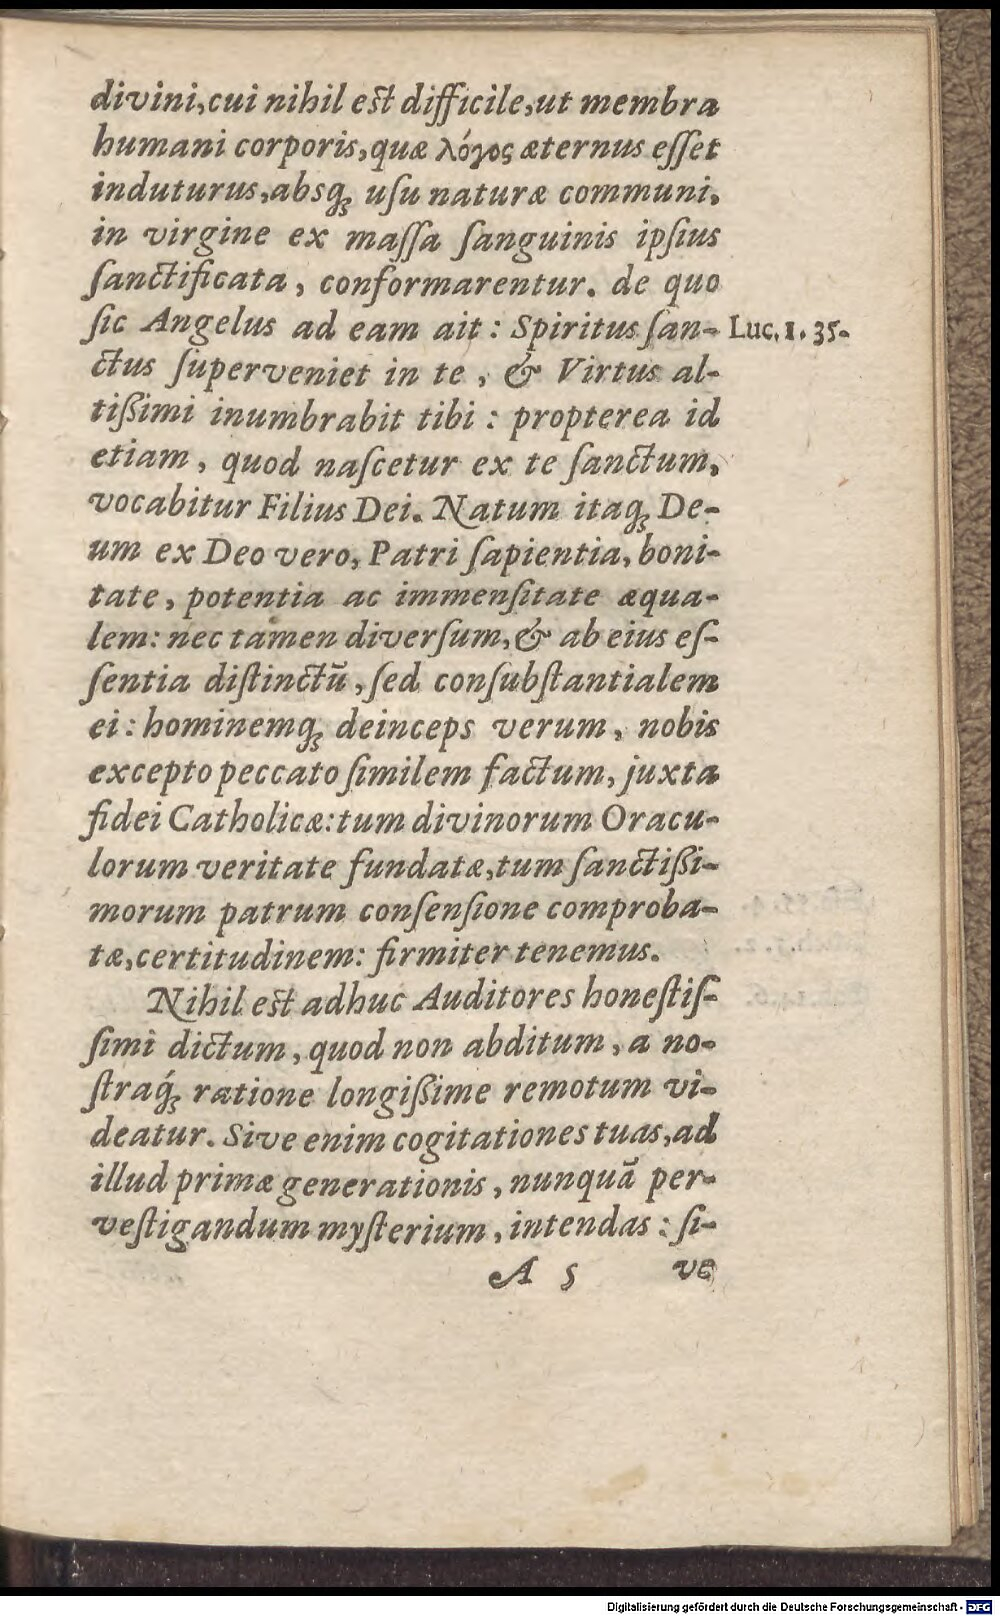 divini,cui nihil est difficile,ut membra
humani corporis,quæ λόγος æternus eſſet
induturus,absq; uſu naturæ communi,
in virgine ex maſſa ſanguinis ipſius
ſanctificata, conformarentur. de quo
ſic Angelus ad eam ait: Spiritus ſan-
Luc. 1. 35.
ctus ſuperveniet in te, & Virtus al-
tißimi inumbrabit tibi: propterea id
etiam, quod naſcetur ex te ſanctum,
vocabitur Filius Dei. Natum itaq; De-
um ex Deo vero, Patri ſapientia, boni-
tate, potentia ac immenſitate æqua-
lem: nec tamen diverſum,& ab eius eſ-
ſentia diſtinctũ, ſed conſubſtantialem
ei: hominemq; deinceps verum, nobis
excepto peccato ſimilem factum, juxta
fidei Catholicæ: tum divinorum Oracu-
lorum veritate fundatæ,tum ſanctißi-
morum patrum conſenſione comproba-
tæ,certitudinem: firmiter tenemus.
Nihil est adhuc Auditores honeſtiſ-
ſimi dictum, quod non abditum, a no-
ſtraq́; ratione longißime remotum vi-
deatur. Sive enim cogitationes tuas,ad
illud primæ generationis, nunquã per-
veſtigandum myſterium, intendas: ſi-
A 5 ve
Digitalisierung gefördert durch die Deutsche Forschungsgemeinschaft - DFG